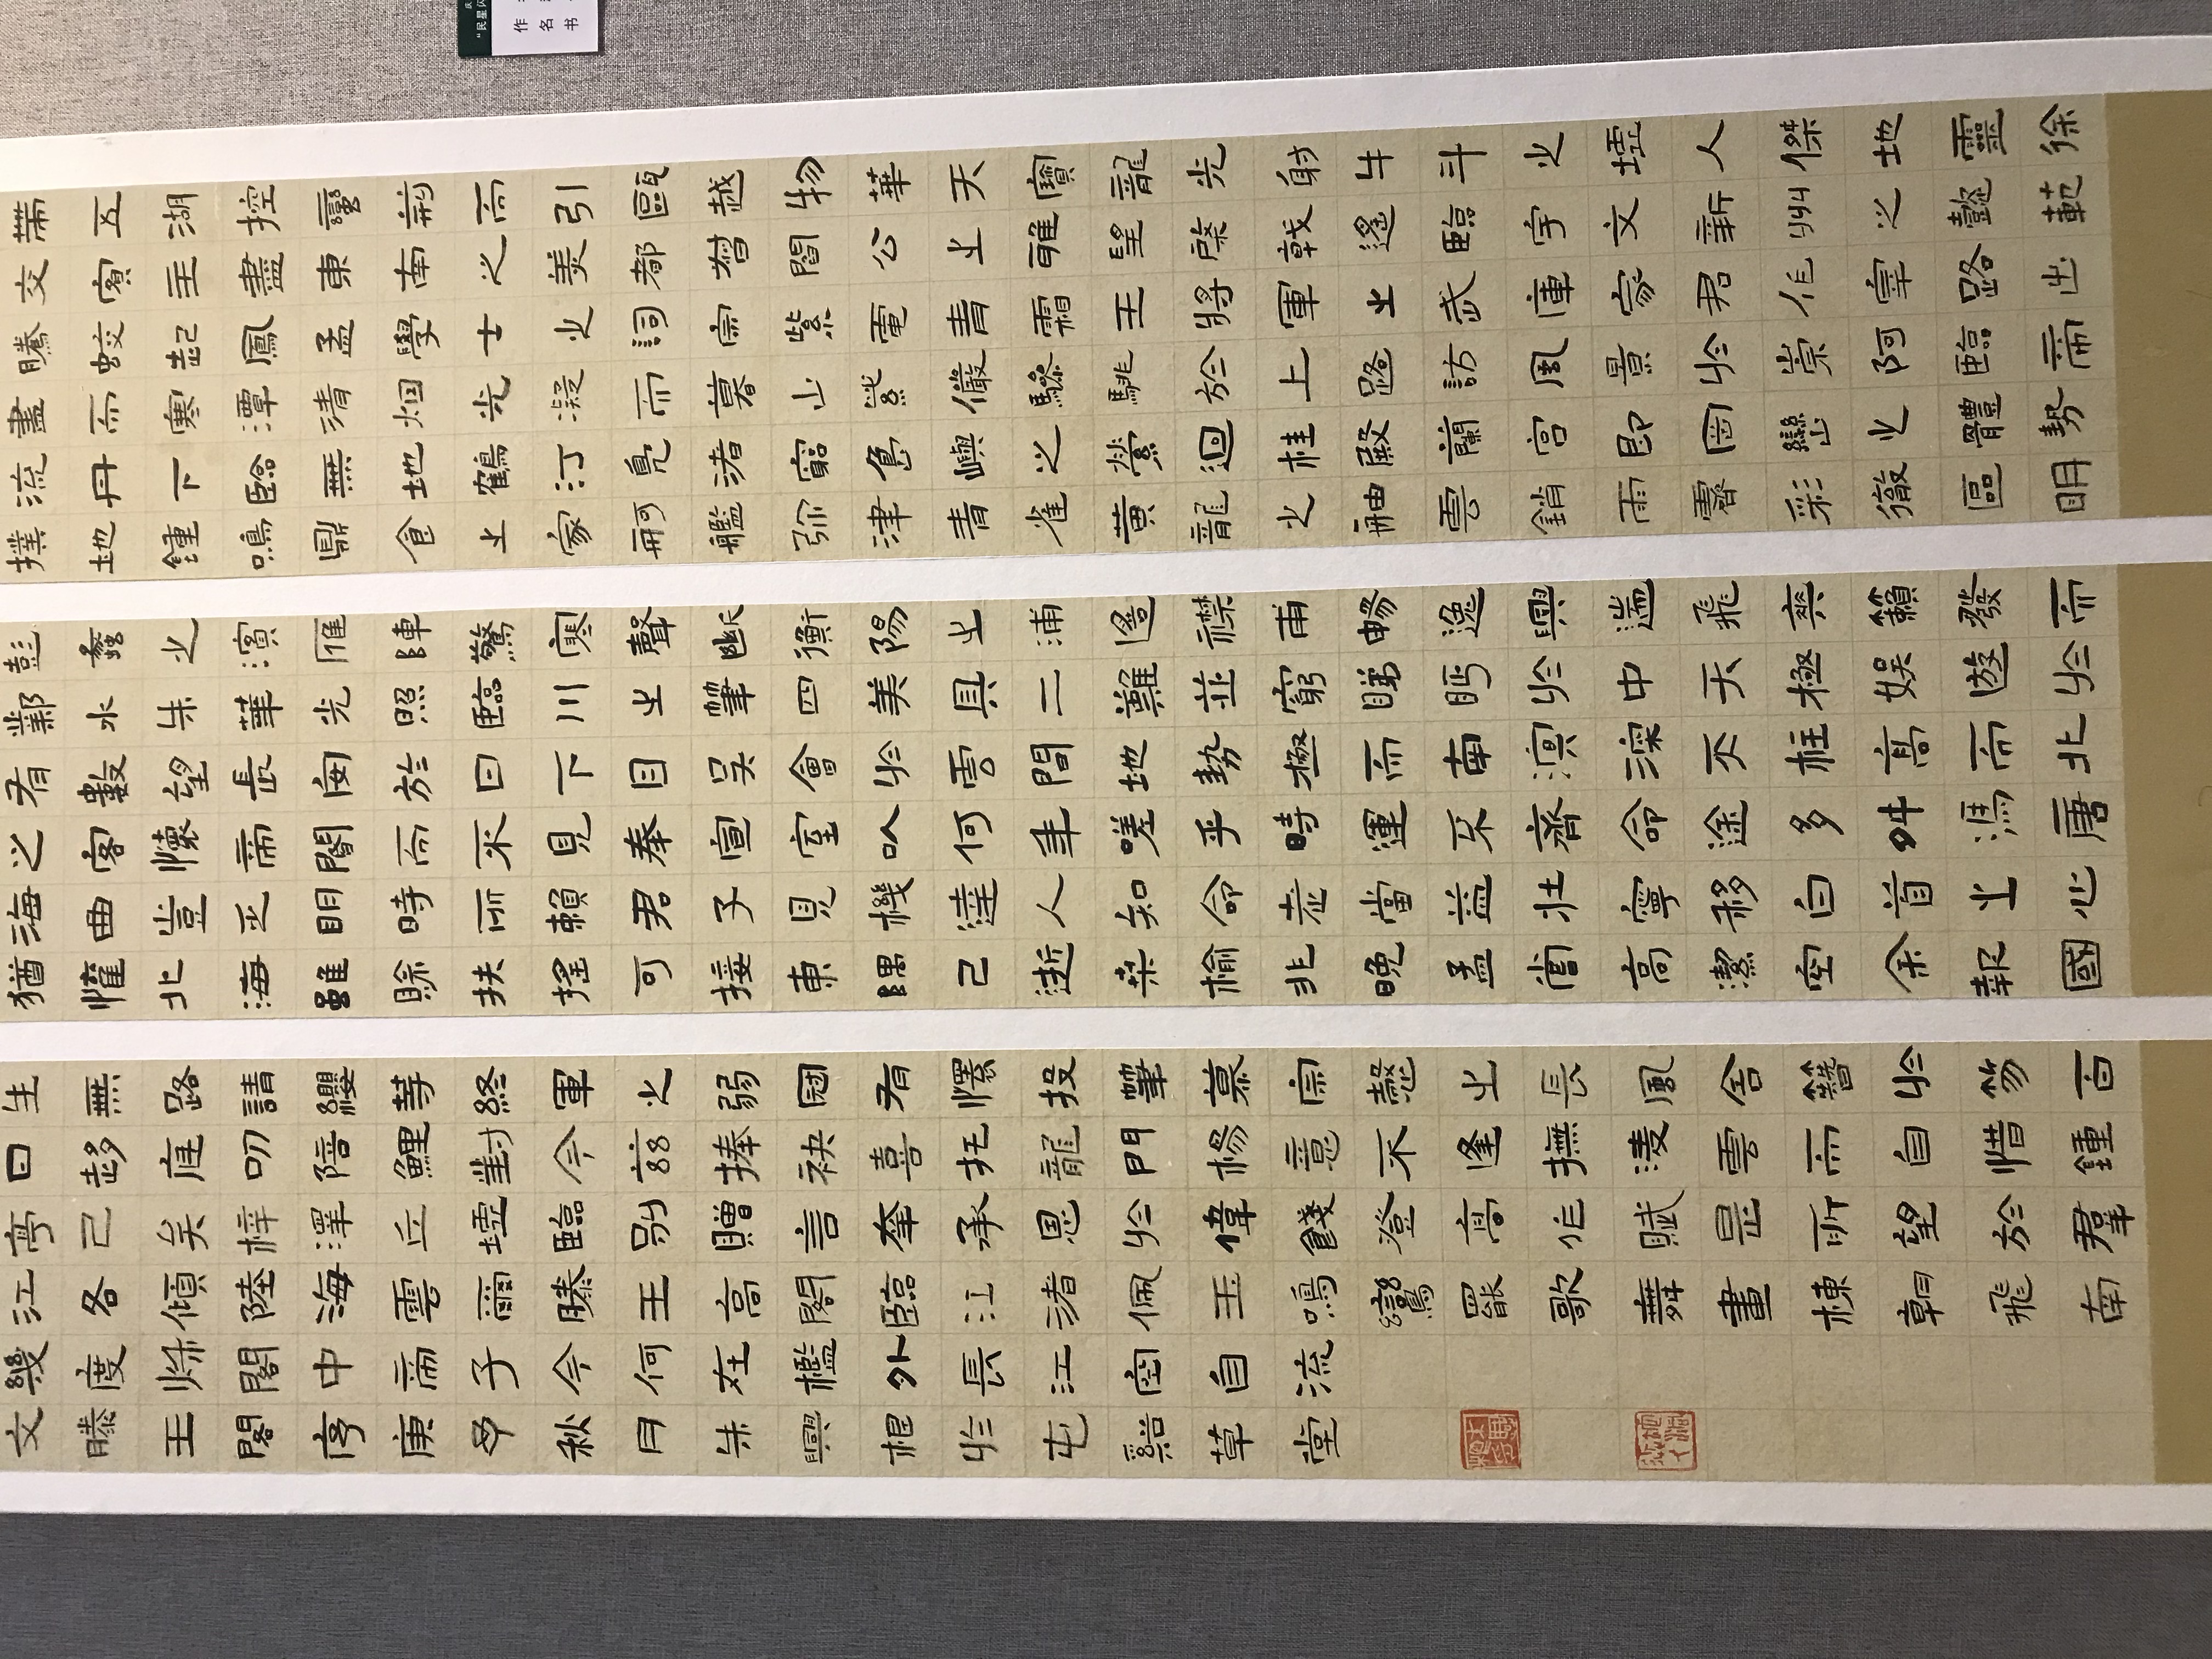 帶五湖控蠻荊而引甌越物華天寶龍光射牛斗之墟人傑地靈徐
交賓主盡東南之美都督閻公之雅望棨戟遙臨宇文新州之懿範
騰蛟起鳳孟學士之詞宗紫電青霜王將軍之武庫家君作宰路出
盡而寒潭清烟光凝而暮山紫儼驂騑於上路訪風景於崇阿臨帝
流丹下臨無地鶴汀鳧渚窮島嶼之縈迴桂殿蘭宮即岡巒之體勢
撲地鍾鳴鼎食之家舸艦弥津青雀黃龍之舳雲銷雨霽彩徹區明
彭蠡之濱雁陣驚寒聲斷衡陽之浦遙襟甫暢逸興遄飛爽籟發而
鄴水朱華光照臨川之筆四美具二難並窮睇眄於中天極娛遊於
有數望長安於日下目吳會於雲間地勢極而南溟深天柱高而北
之客懷帝閽而不見奉宣室以何年嗟乎時運不齊命途多舛馮唐
海曲豈乏明時所賴君子見機達人知命老當益壯寧移白首之心
猶懽北海雖賒扶搖可接東隅已逝桑榆非晚孟嘗高潔空余報國
生無路請纓等終軍之弱冠有懷投筆慕宗愨之長風舍簪於笏百
日趨庭叨陪鯉對今茲捧袂喜托龍門楊意不逢撫淩雲而自惜鍾
亭已矣梓澤丘墟臨別贈言幸承恩於偉餞登高作賦是所望於羣
江各傾陸海雲爾滕王高閣臨江渚佩玉鳴鸞罷歌舞畫棟朝飛南
幾度秋閣中帝子今何在檻外長江空自流
文滕王閣序庚子秋月朱興根於屯谿草堂
庆
“民星闪
作
名
书